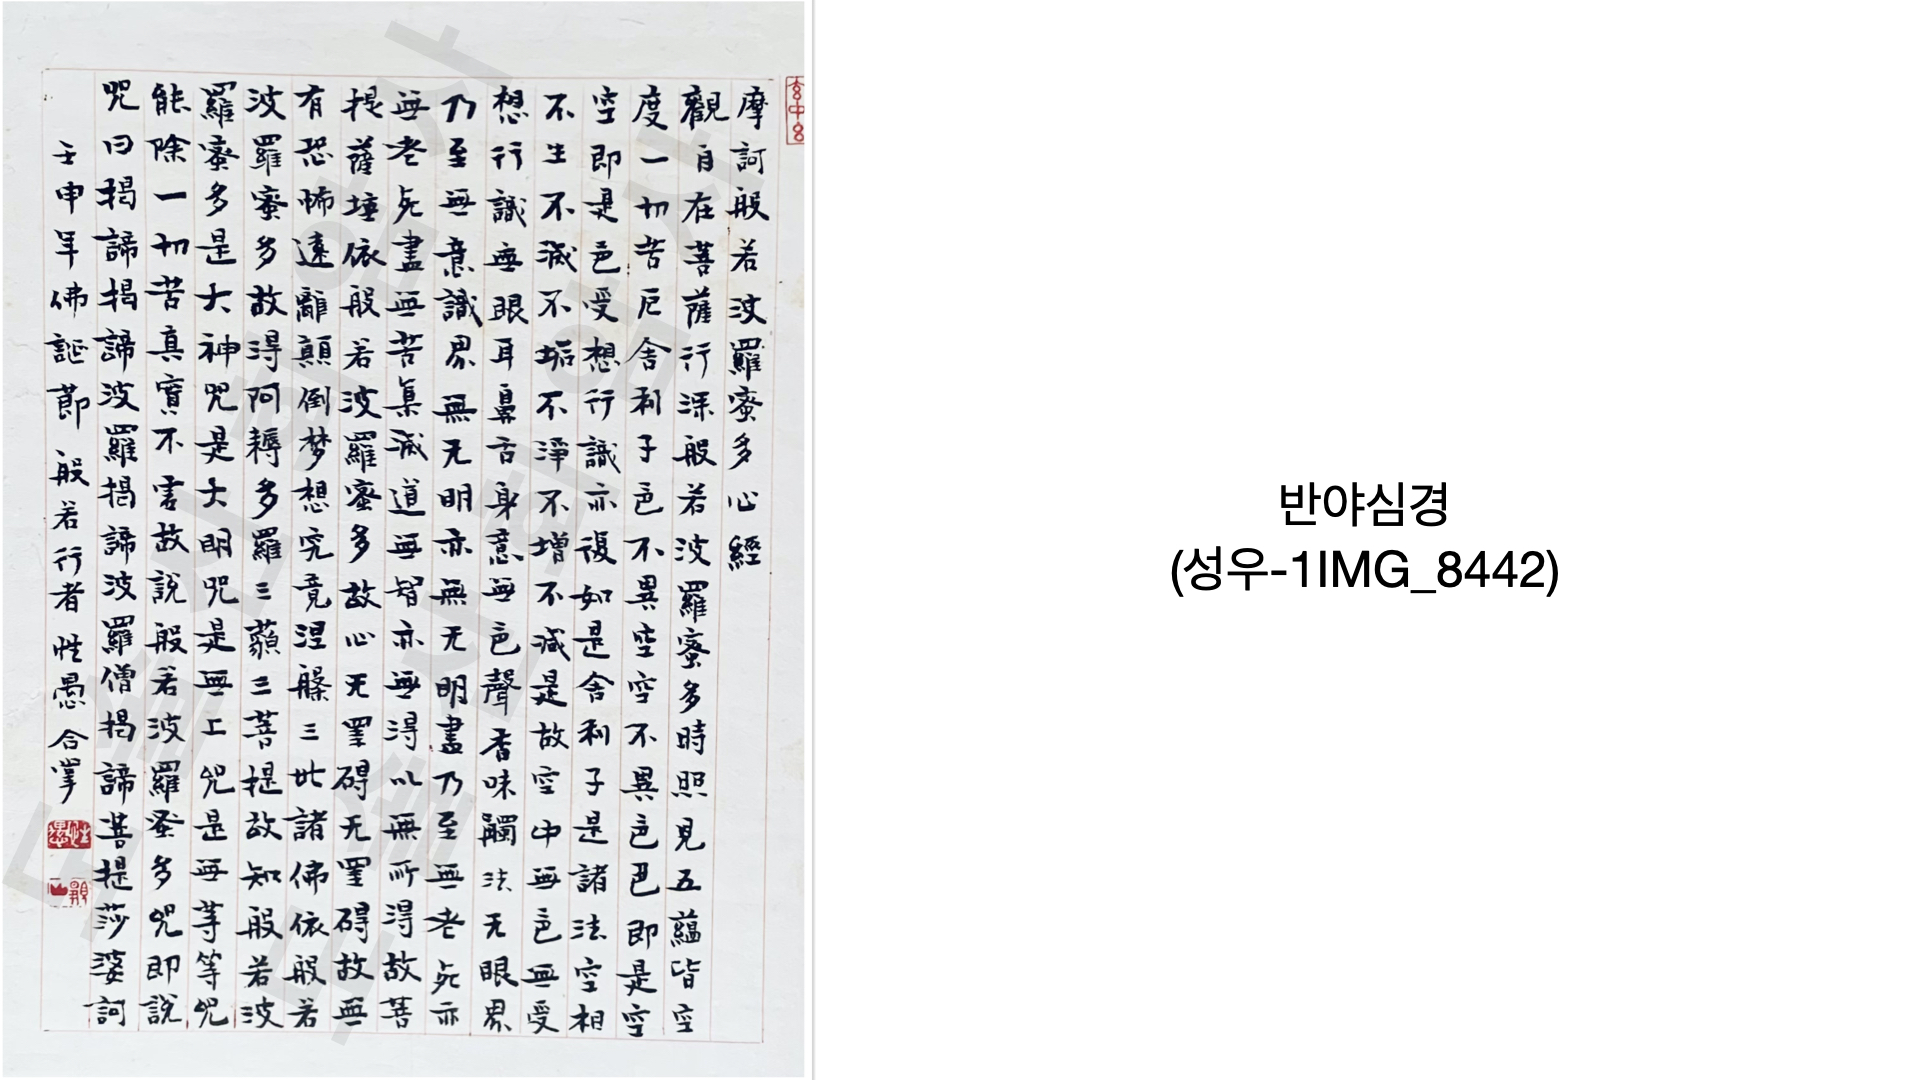 摩訶般若波羅蜜多心經
觀自在菩薩行深般若波羅蜜多時照見五蘊皆空
度一切苦厄舍利子色不異空空不異色色即是空
空即是色受想行識亦復如是舍利子是諸法空相
不生不滅不垢不淨不增不減是故空中無色無受
想行識無眼耳鼻舌身意無色聲香味觸法无眼界
乃至無意識界無无明亦無无明盡乃至無老死亦
無老死盡無苦集滅道無智亦無得以無所得故菩
提薩埵依般若波羅蜜多故心无罣碍无罣碍故無
有恐怖遠離顛倒梦想究竟涅槃三世諸佛依般若
波羅蜜多故得阿耨多羅三藐三菩提故知般若波
羅蜜多是大神咒是大明咒是無上咒是無等等咒
能除一切苦真實不虛故說般若波羅蜜多咒即說
咒曰揭諦揭諦波羅揭諦波羅僧揭諦菩提莎婆訶
壬申年佛誕節 般若行者性愚合掌
性愚
반야심경
(성우-1IMG_8442)